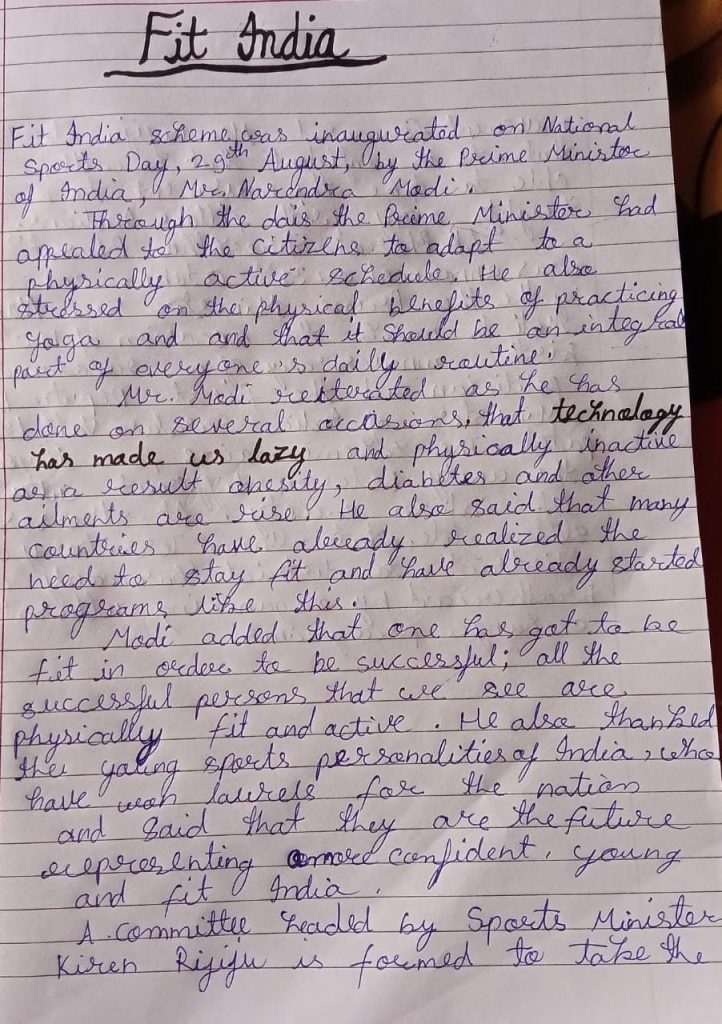 Fit India
Fit India scheme was inaugurated on National
Sports Day, 29th August, by the Prime Minister
of India, Mr. Narendra Modi.
Through the dais the Prime Minister had
appealed to the citizens to adapt to a
physically active schedule. He also
stressed on the physical benefits of practicing
yoga and and that it should be an integral
part of everyone's daily routine.
Mr. Modi reiterated as he has
done on several occasions, that technology
has made us lazy and physically inactive
as a result obesity, diabetes and other
ailments are rise. He also said that many
countries have already realized the
need to stay fit and have already started
programs like this.
Modi added that one has got to be
fit in order to be successful; all the
successful persons that we see are
physically fit and active. He also thanked
the young sports personalities of India, who
have won laurels for the nation
and said that they are the future
representing more confident, young
and fit India.
A committee headed by Sports Minister
Kiren Rijiju is formed to take the